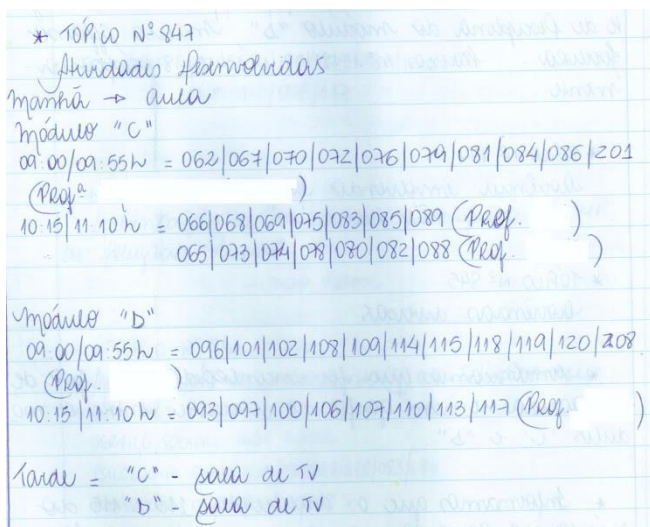 * TÓPICO Nº 847
Atividades desenvolvidas
manhã → aula
módulo "C"
09:00/09:55h = 062|067|070|072|076|079|081|084|086|201
(Profª )
10:15|11:10h = 066|068|069|075|083|085|089 (Prof. )
065|073|074|078|080|082|088 (Prof. )
módulo "D"
09:00/09:55h = 096|101|102|108|109|114|115|118|119|120|208
(Prof. )
10:15|11:10h = 093|097|100|106|107|110|113|117 (Prof )
Tarde = "C" - sala de TV
"D" - sala de TV